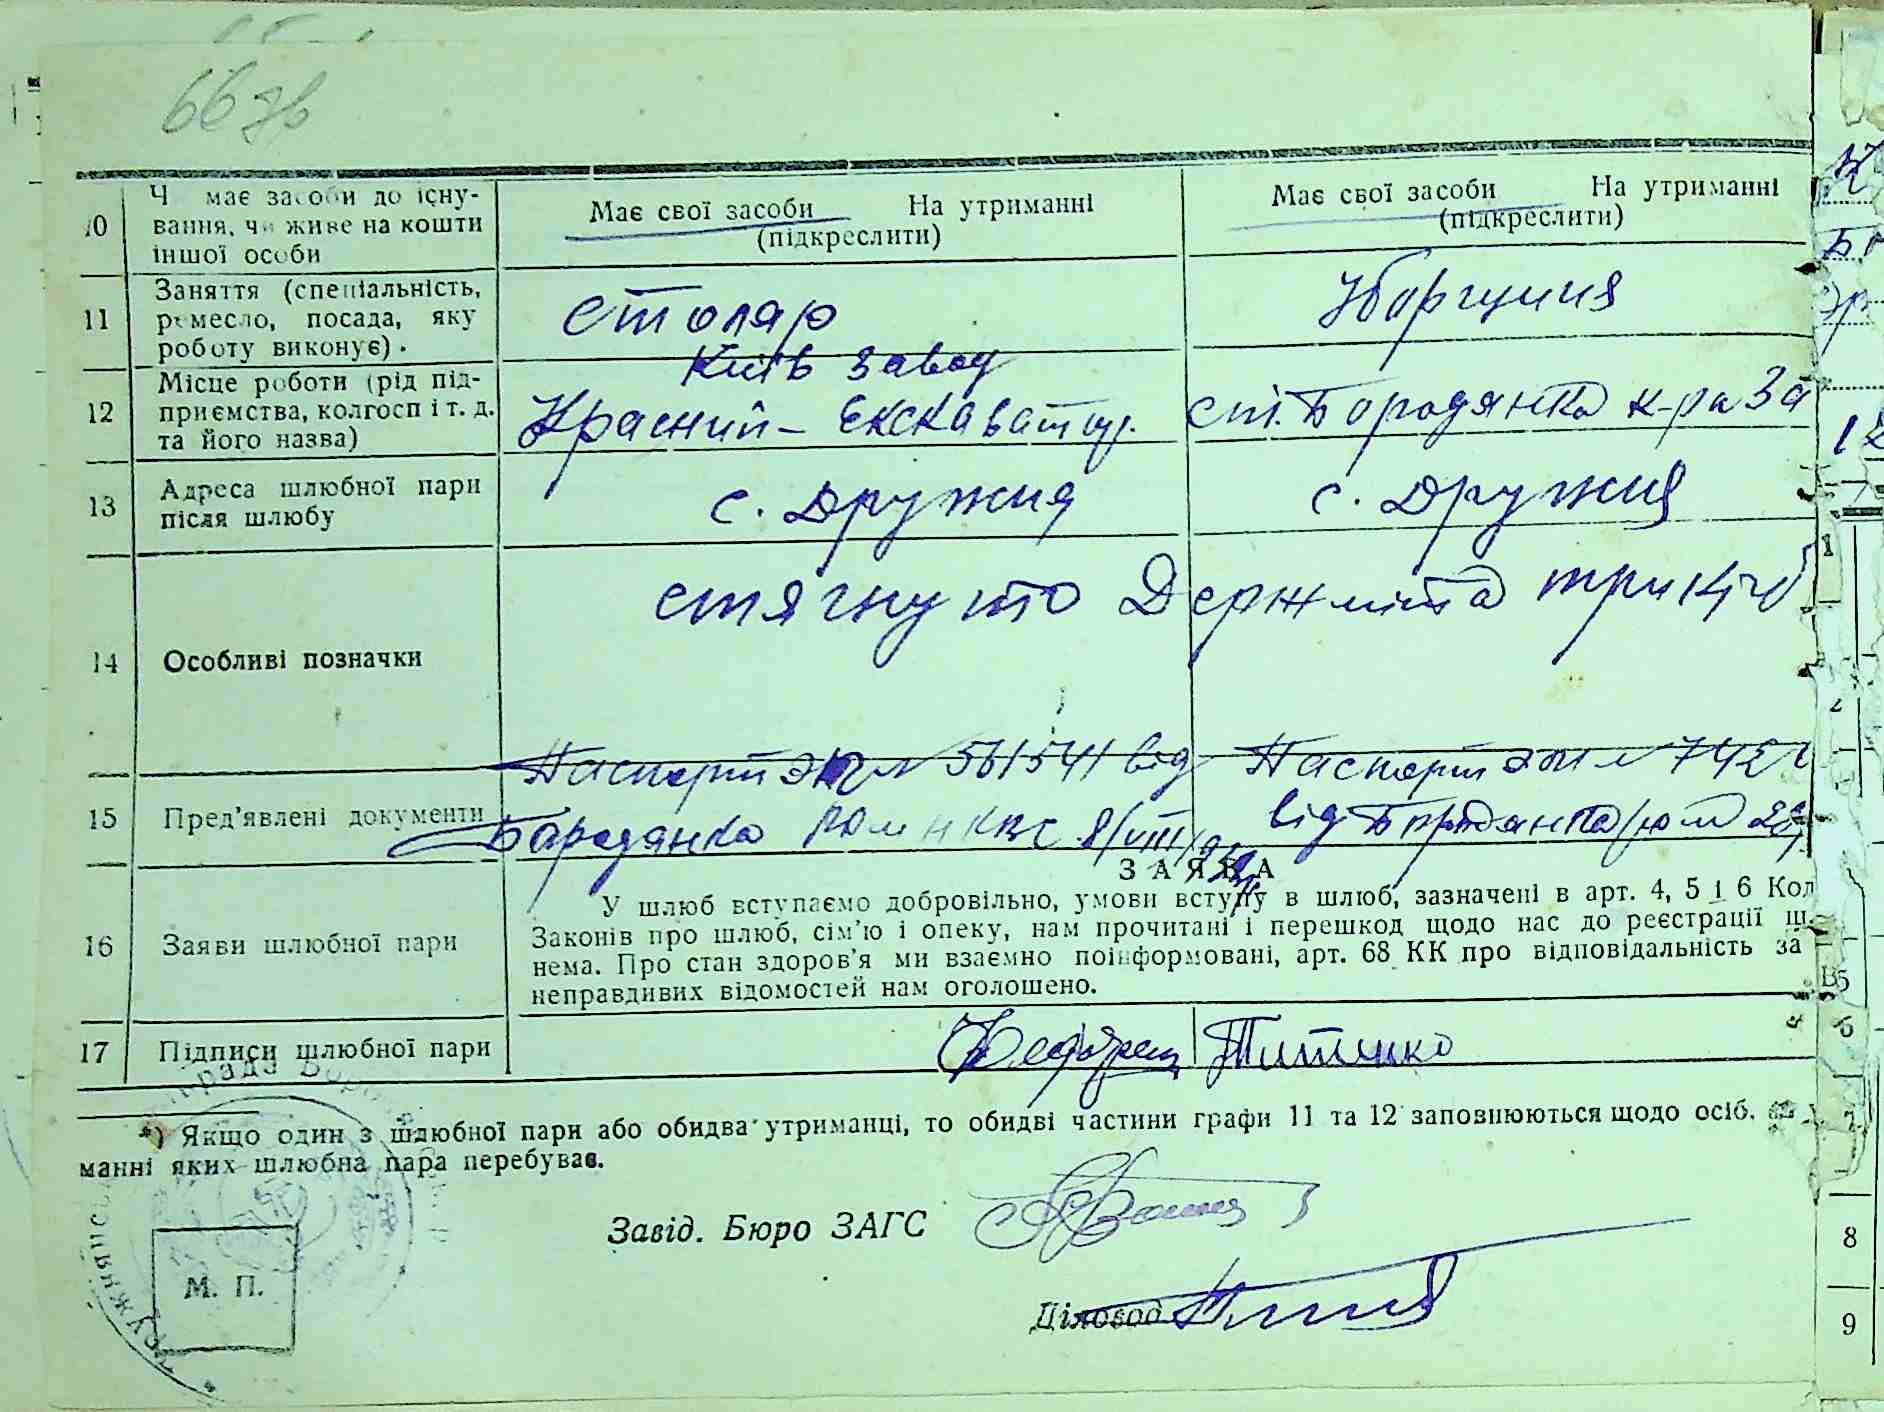 66 зв
10 Ч має засоби до існу-
вання, чи живе на кошти
іншої особи
Має свої засоби На утриманні
(підкреслити)
Має свої засоби На утриманні
(підкреслити)
11 Заняття (спеціальність,
ремесло, посада, яку
роботу виконує).
Столяр
Уборщиця
12 Місце роботи (рід під-
приємства, колгосп і т. д.
та його назва)
Київ завод
Красний-Екскаватор.
ст. Бородянка к-ра За
13 Адреса шлюбної пари
після шлюбу
с. Дружня
с. Дружня
14 Особливі позначки
стягнуто Держмита три крб
15 Пред'явлені документи
Паспорт № 561541 від
Бародянка НКВС 8/VIII
Паспорт № 742
від Бородянка
ЗАЯВА
16 Заяви шлюбної пари
У шлюб вступаємо добровільно, умови вступу в шлюб, зазначені в арт. 4, 5 і 6 Код
Законів про шлюб, сім'ю і опеку, нам прочитані і перешкод щодо нас до реєстрації ш
нема. Про стан здоров'я ми взаємно поінформовані, арт. 68 КК про відповідальність за
неправдивих відомостей нам оголошено.
17 Підписи шлюбної пари
Титенко
*) Якщо один з шлюбної пари або обидва утриманці, то обидві частини графи 11 та 12 заповнюються щодо осіб,
манні яких шлюбна пара перебуває.
Завід. Бюро ЗАГС
М. П.
Діловод
1
2
5
6
8
9